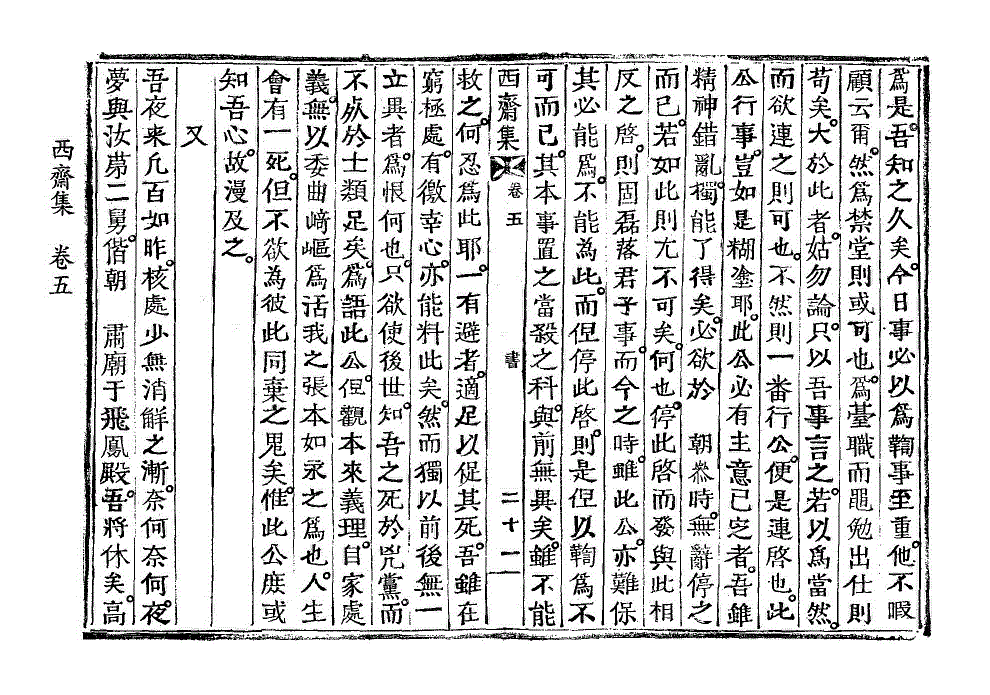 爲是。吾知之久矣。今日事必以爲鞫事至重。他不暇
顧云爾。然爲禁堂則或可也。爲臺職而黽勉出仕則
苟矣。大於此者。姑勿論。只以吾事言之。若以爲當然。
而欲連之則可也。不然則一番行公。便是連啓也。此
公行事。豈如是糊塗耶。此公必有主意已定者。吾雖
精神錯亂。獨能了得矣。必欲於 朝參時。無辭停之
而已。若如此則尤不可矣。何也。停此啓而發與此相
反之啓。則固磊落君子事。而今之時。雖此公。亦難保
其必能爲。不能為此。而但停此啓。則是但以鞫爲不
可而已。其本事置之當殺之科。與前無異矣。雖不能
西齋集 卷五 書 二十一
救之。何忍爲此耶。一有避者。適足以促其死。吾雖在
窮極處。有徼幸心。亦能料此矣。然而獨以前後無一
立異者。爲恨何也。只欲使後世。知吾之死於兇黨。而
不死於士類足矣。爲語此公。但觀本來義理。自家處
義。無以委曲崎嶇爲活我之張本如永之爲也。人生
會有一死。但不欲為彼此同棄之鬼矣。惟此公庶或
知吾心。故漫及之。
又
吾夜来凡百如昨。核處少無消鮮之漸。奈何奈何。夜
夢與汝第二舅。偕朝 肅廟于飛鳳殿。吾將休矣。高
西齋集 卷五